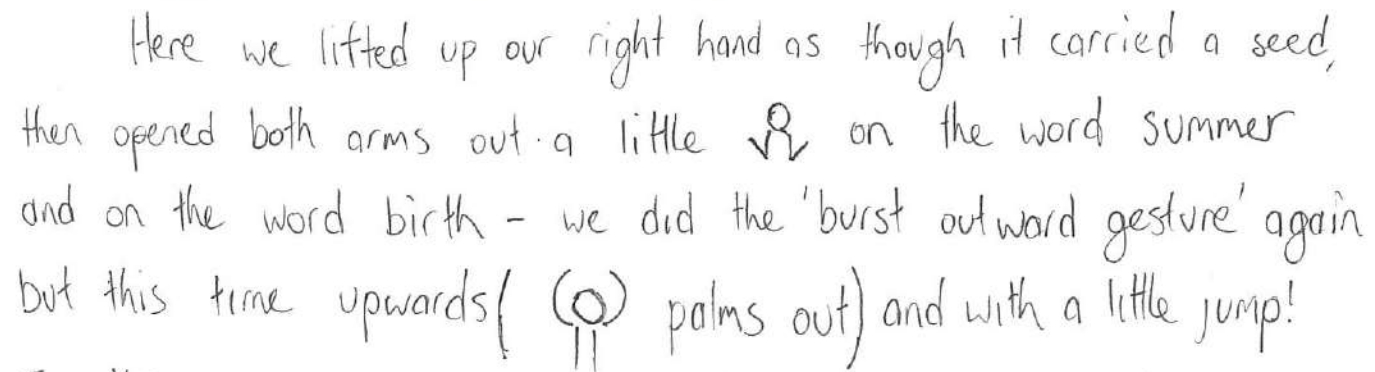 Here we lifted up our right hand as though it carried a seed,
then opened both arms out a little on the word summer
and on the word birth - we did the 'burst outward gesture' again
but this time upwards ( palms out) and with a little jump!